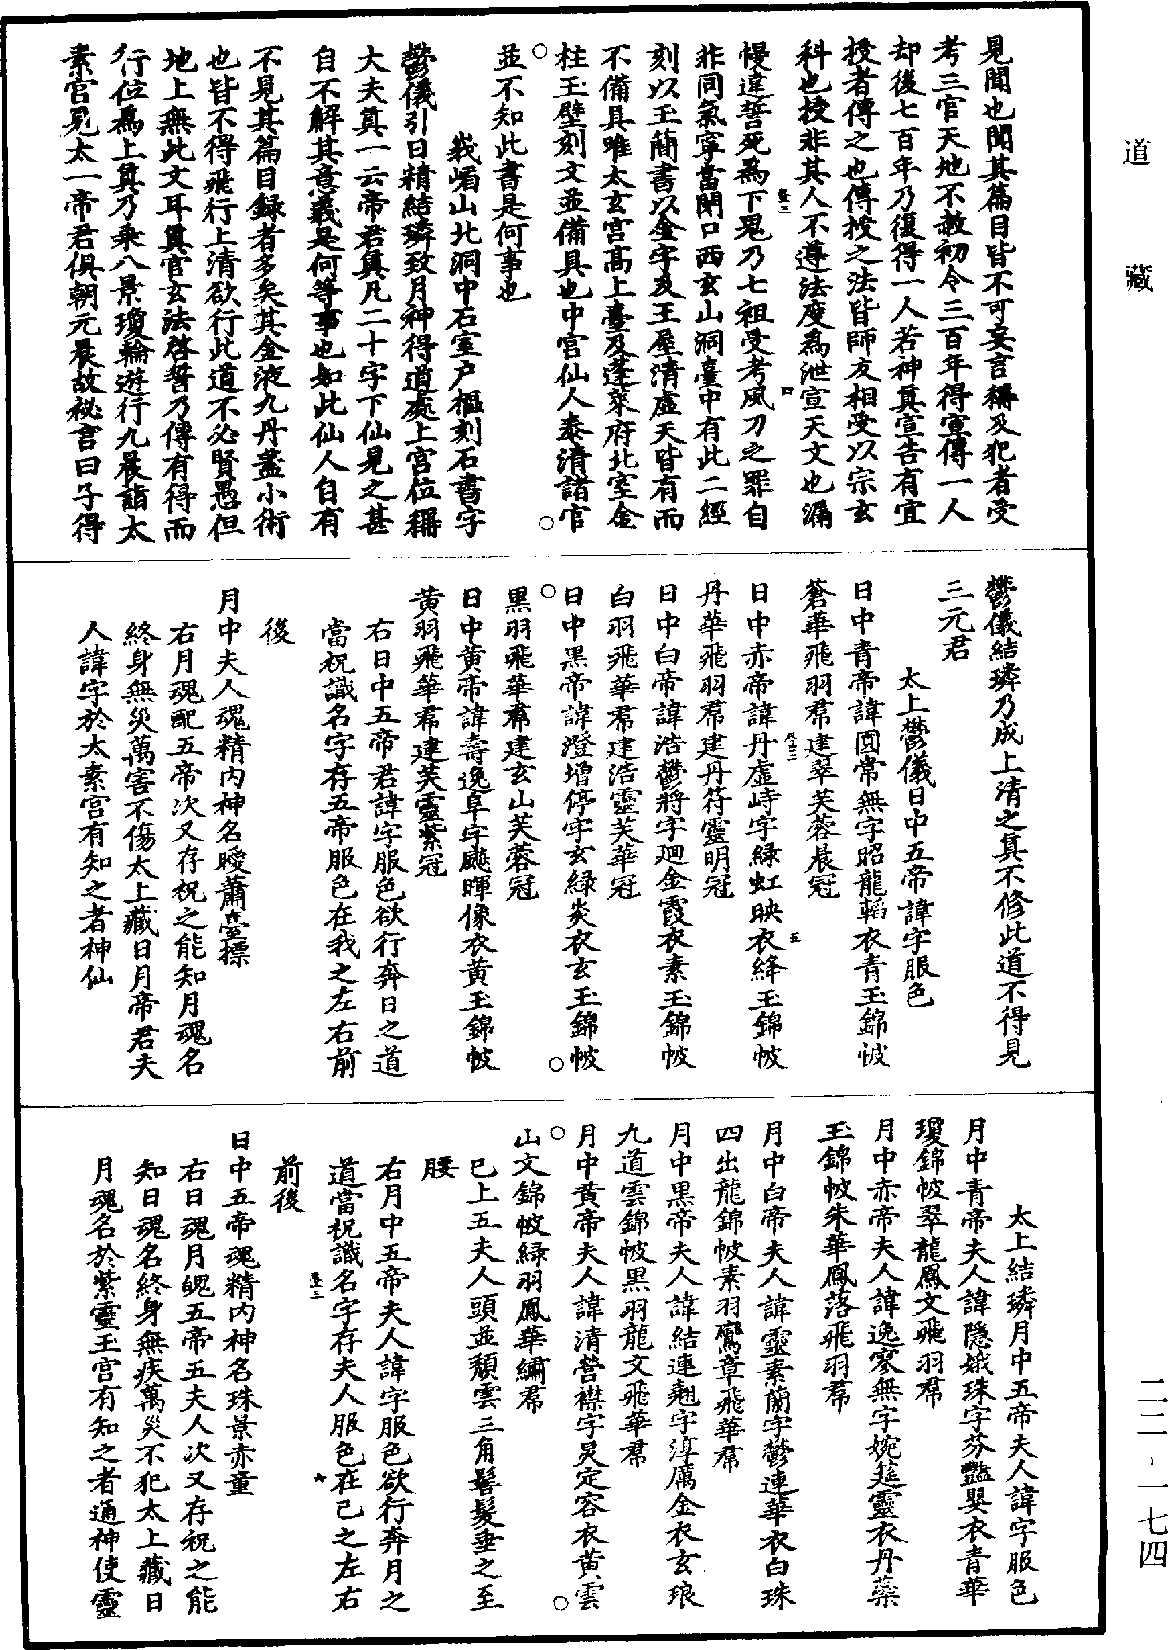 道藏
見聞也聞其篇目皆不可妄言稱及犯者受
考三官天地不赦初令三百年得宣傳一人
却後七百年乃復得一人若神真宣告有宜
授者傳之也傳授之法皆師友相受以宗玄
科也授非其人不遵法度為泄宣天文也漏
慢違誓死為下鬼乃七祖受考風刀之罪自
非同氣寧當閉口西玄山洞臺中有此二經
刻以玉簡書以金字及王屋清虛天皆有而
不備具唯太玄宮高上臺及蓬萊府北室金
柱玉壁刻文並備具也中宮仙人泰清諸官
並不知此書是何事也
峩嵋山北洞中石室户樞刻石書字
鬱儀引日精結璘致月神得道處上宮位稱
大夫真一云帝君真凡二十字下仙見之甚
自不解其意義是何等事也如此仙人自有
不見其篇目録者多矣其金液九丹蓋小術
也皆不得飛行上清欲行此道不必賢愚但
地上無此文耳真官玄法啓誓乃傳有得而
行位爲上真乃乘八景瓊輪遊行九晨詣太
素宮見太一帝君俱朝元晨故祕言曰子得
鬱儀結璘乃成上清之真不修此道不得見
三元君
太上鬱儀日中五帝諱字服色
日中青帝諱圓常無字昭龍韜衣青玉錦帔
蒼華飛羽帬建翠芙蓉晨冠
日中赤帝諱丹虛峙字綠虹映衣絳玉錦帔
丹華飛羽帬建丹符靈明冠
日中白帝諱浩鬱將字廻金霞衣素玉錦帔
白羽飛華帬建浩靈芙華冠
日中黑帝諱澄增停字玄綠炎衣玄玉錦帔
黑羽飛華帬建玄山芙蓉冠
日中黃帝諱壽逸阜字飇暉像衣黃玉錦帔
黃羽飛華帬建芙靈紫冠
右日中五帝君諱字服色欲行奔日之道
當祝識名字存五帝服色在我之左右前
後
月中夫人魂精内神名曖蕭臺標
右月魂配五帝次又存祝之能知月魂名
終身無災萬害不傷太上藏日月帝君夫
人諱字於太素宮有知之者神仙
太上結璘月中五帝夫人諱字服色
月中青帝夫人諱隱娥珠字芬豔嬰衣青華
瓊錦帔翠龍鳳文飛羽帬
月中赤帝夫人諱逸寥無字婉筵靈衣丹蘂
玉錦帔朱華鳳落飛羽帬
月中白帝夫人諱靈素蘭字鬱連華衣白珠
四出龍錦帔素羽鸞章飛華帬
月中黑帝夫人諱結連翹字淳厲金衣玄琅
九道雲錦帔黑羽龍文飛華帬
月中黃帝夫人諱清營襟字炅定容衣黃雲
山文錦帔綠羽鳳華繡帬
已上五夫人頭並頹雲三角髻髮垂之至
腰
右月中五帝夫人諱字服色欲行奔月之
道當祝識名字存夫人服色在己之左右
前後
日中五帝魂精内神名珠景赤童
右日魂月魄五帝五夫人次又存祝之能
知日魂名終身無疾萬災不犯太上藏日
月魂名於紫靈玉宮有知之者通神使靈
二二-一七四